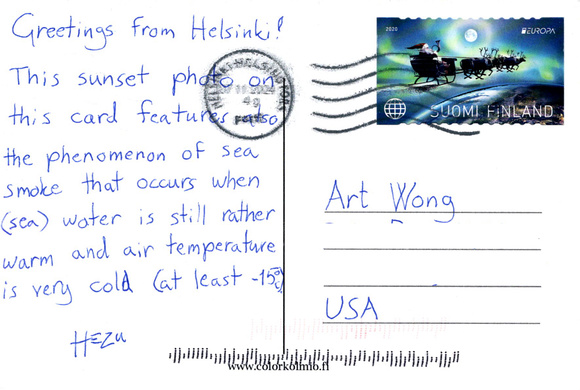 Greetings from Helsinki!
This sunset photo on
this card features also
the phenomenon of sea
smoke that occurs when
(sea) water is still rather
warm and air temperature
is very cold (at least -15°C)
HEZU
HELSINKI-HELSINGFORS
2020
EUROPA
SUOMI FINLAND
Art Wong
USA
www.colorkolmio.fi